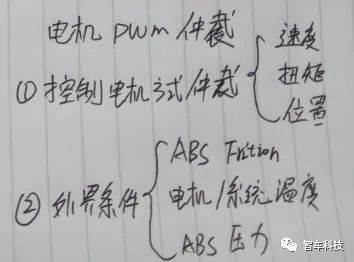 电机 PWM 仲裁
① 控制电机方式仲裁
速度
扭矩
位置
② 外界条件
ABS Frition
电机/系统温度
ABS 压力
智车科技